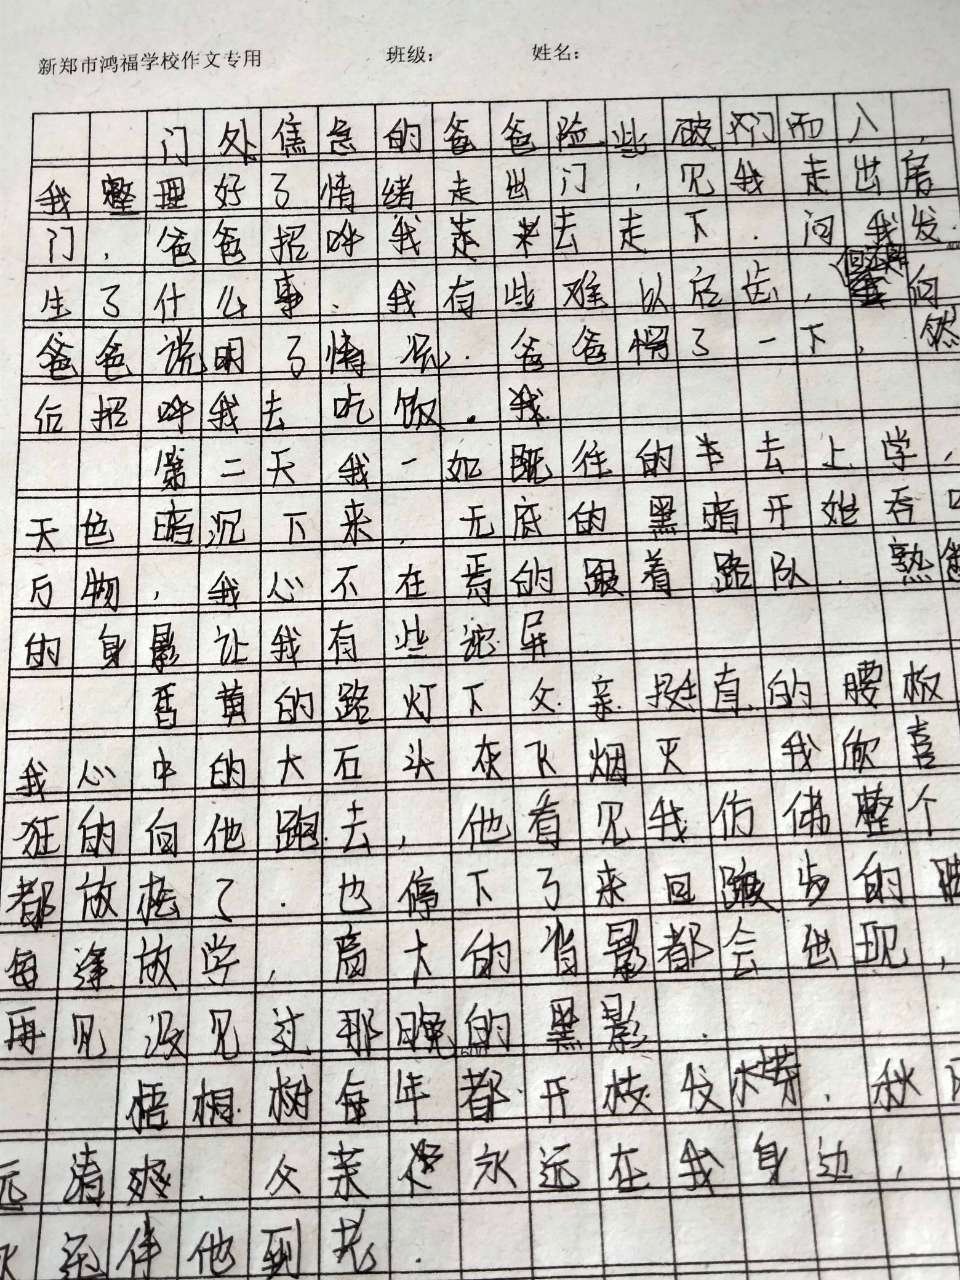 新郑市鸿福学校作文专用 班级： 姓名：
门处焦急的爸爸险些破门而入，
我整理好了情绪走出门，见我走出房
门，爸爸招呼我走来去走下．问我发
生了什么事．我有些难以启齿，向
爸爸说明了情况．爸爸愣了一下，然
后招呼我去吃饭．我
第二天我一如既往的去上学，
天色暗沉下来．无底的黑暗开始吞
万物，我心不在焉的跟着路队．熟
的身影让我有些诧异
昏黄的路灯下父亲挺直的腰板
我心中的大石头灰飞烟灭．我欣喜
狂的向他跑去，他看见我仿佛整个
都放松了．也停下了来回踱步的
每逢放学，高大的背影都会出现，
再见没见过那晚的黑影．
梧桐树每年都开枝发芽．秋
清爽．父亲永远在我身边，
伴他到老．